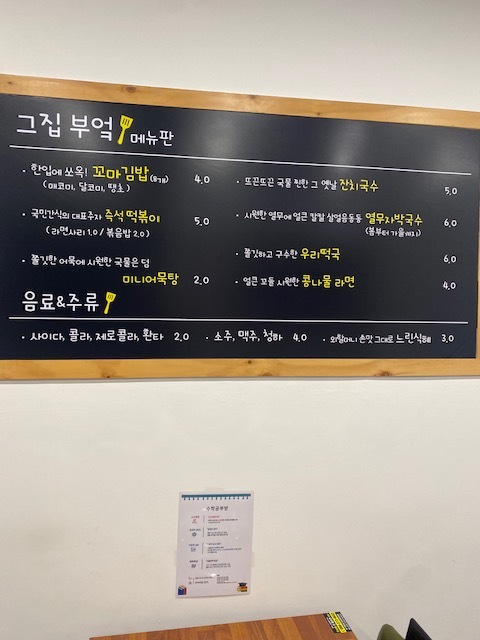 그집 부엌 메뉴판
• 한입에 쏘옥! 꼬마김밥(8개) 4.0
(매코미, 달코미, 땡초)
• 국민간식의 대표주자 즉석 떡볶이 5.0
(라면사리 1.0 / 볶음밥 2.0)
• 쫄깃한 어묵에 시원한 국물은 덤
미니어묵탕 2.0
• 뜨끈뜨끈 국물 찐한 그 옛날 잔치국수 5.0
• 시원한 열무에 얼큰 칼칼 살얼음동동 열무자박국수 6.0
(봄부터 가을까지)
• 쫄깃하고 구수한 우리떡국 6.0
• 얼큰 꼬들 시원한 콩나물 라면 4.0
음료&주류
• 사이다, 콜라, 제로콜라, 환타 2.0
• 소주, 맥주, 청하 4.0
• 외할머니 손맛 그대로 느린식혜 3.0
수학공부방